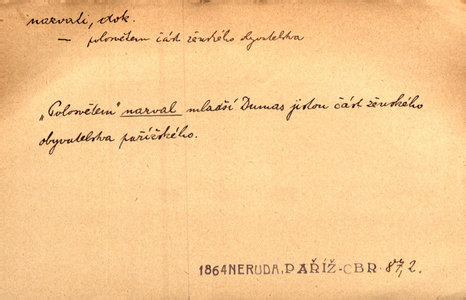 nazvati, dok.
— polosvětem část ženského obyvatelstva
„Polosvětem" nazval mladší Dumas jistou část ženského
obyvatelstva pařížského.
1864 NERUDA, PAŘÍŽ-CBR 87, 2.